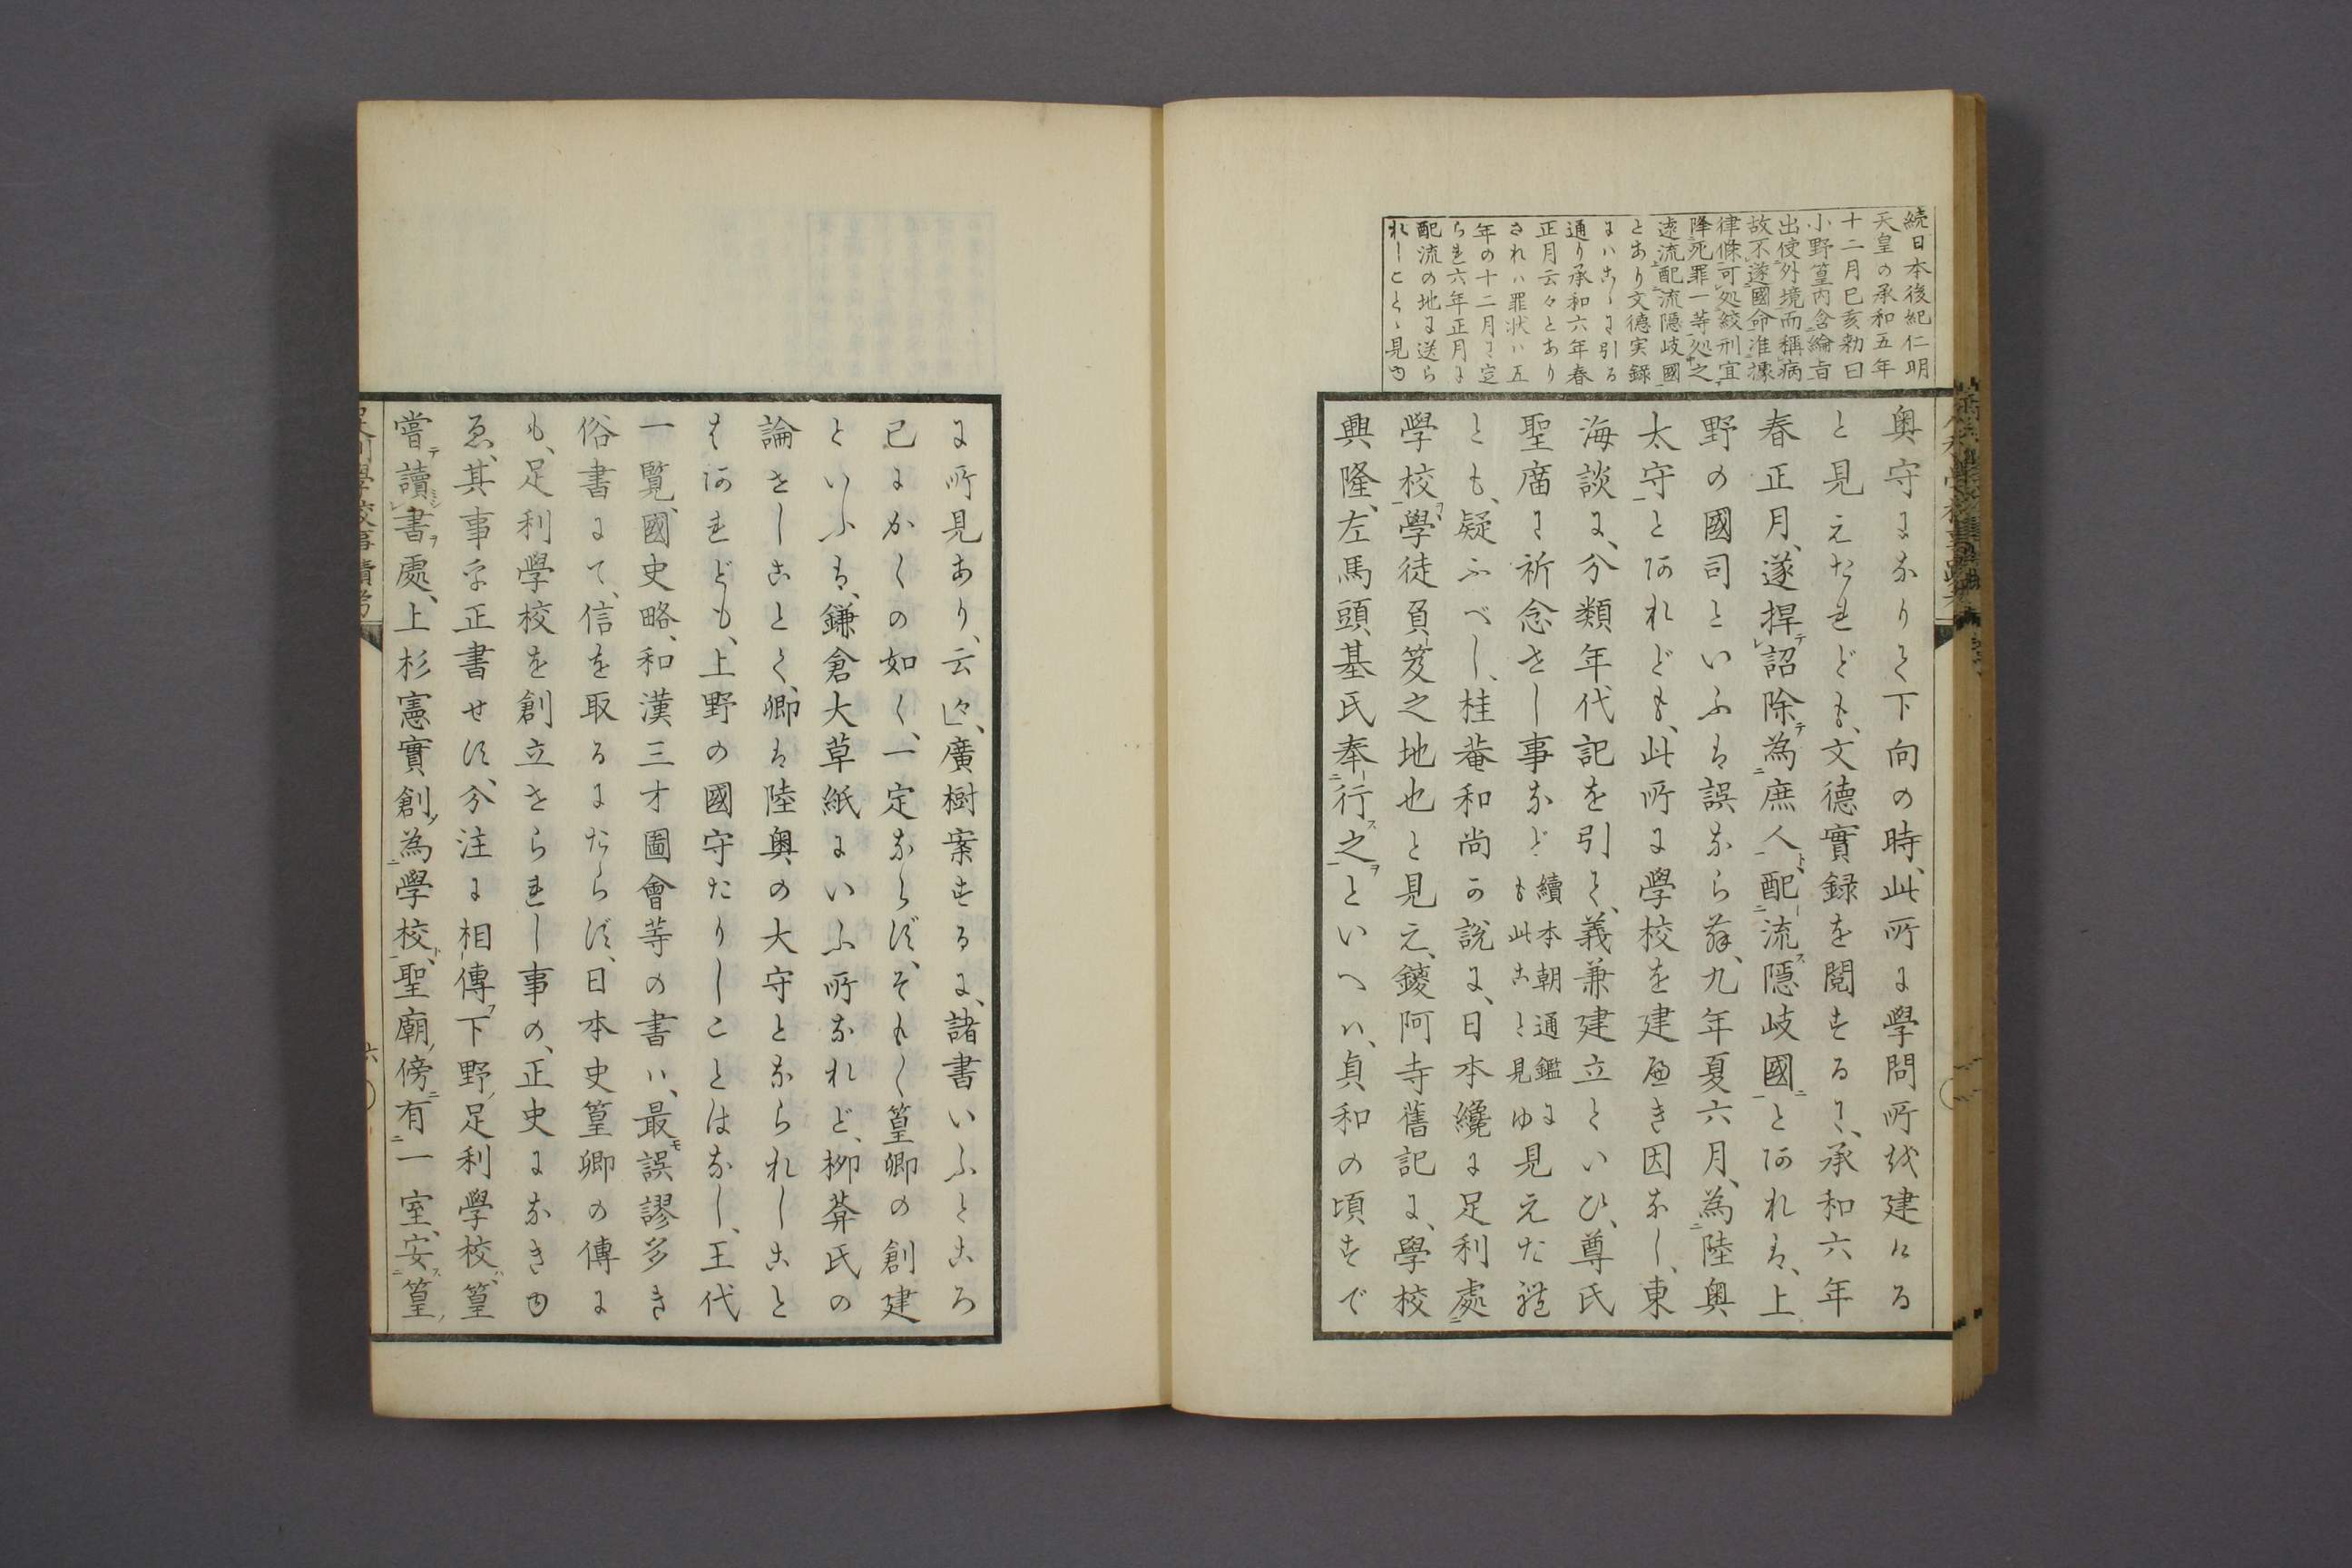 続日本後紀仁明
天皇の承和五年
十二月己亥勅曰
小野篁内含綸旨
出使外境而稱病
故不遂國命准據
律條可処絞刑宜
降死罪一等処之
遠流配流隠岐國
とあり文徳実録
にハこゝに引る
通り承和六年春
正月云々とあり
されハ罪状ハ五
年の十二月に定
られ六年正月に
配流の地に送ら
れしこと、見ゆ
奥守になりて下向の時、此所に學問所を建ける
と見えたれども、文德實録を閲するに、承和六年
春正月、遂捍詔除為庶人配流隠岐國とあれば、上
野の國司といふは誤ならむ、九年夏六月、為陸奥
太守とあれども、此所に學校を建べき因なし、東
海談に、分類年代記を引て、義兼建立といひ、尊氏
聖庿に祈念せし事など續本朝通鑑に見えたれ
も此こと見ゆ
とも、疑ふべし、桂菴和尚の説に、日本纔に足利處
學校、學徒負笈之地也と見え、鑁阿寺舊記に、學校
興隆、左馬頭基氏奉行之といへハ、貞和の頃すで
に所見あり、云々、廣樹案するに、諸書いふところ
已にかくの如く、一定ならず、そも〳〵篁卿の創建
といふは、鎌倉大草紙にいふ所なれど、柳葊氏の
論せしことく、卿は陸奥の大守となられしこと
はあれども、上野の國守たりしことはなし、王代
一覧、國史略、和漢三才圖會等の書ハ、最誤謬多き
俗書にて、信を取るにたらず、日本史篁卿の傳に
も、足利學校を創立せられし事の、正史になきゆ
ゑ、其事を正書せず、分注に相傳下野足利學校、篁
嘗讀書處、上杉憲實創為學校、聖廟傍有一室、安篁
足利學校事蹟考
六